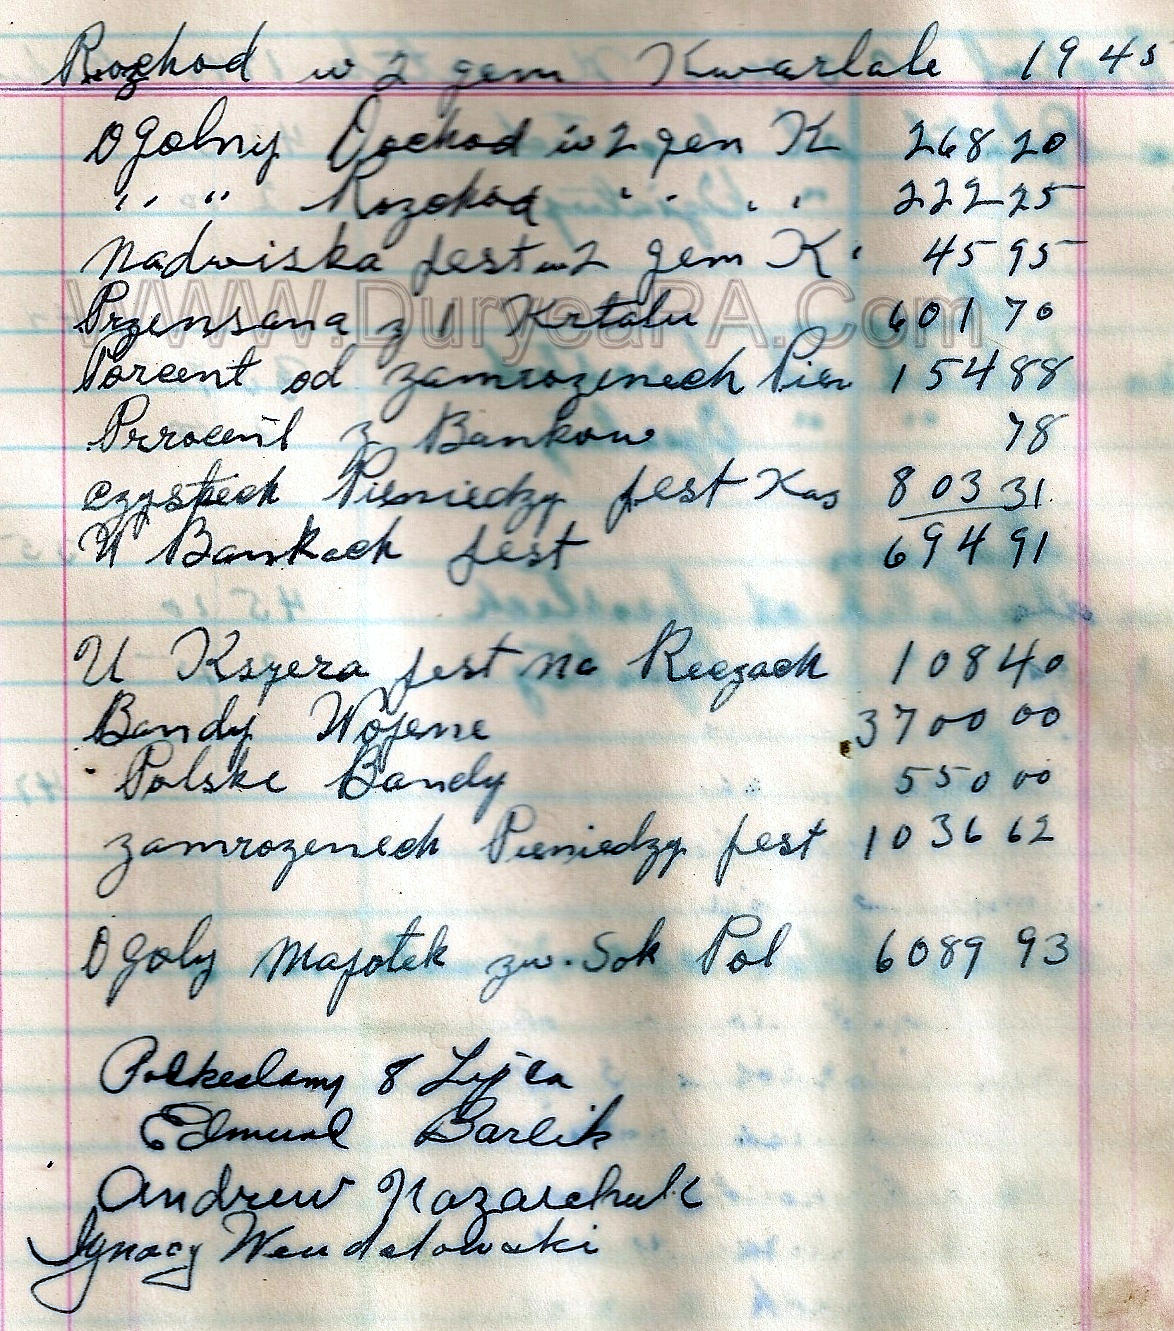 Rozhod w 2 gem Kwartale 1945
Ogolny Dochod w 2 gem K 268 20
,, ,, Rozchod ,, ,, ,, ,, 222 25
Nadwiska jest w 2 gem K. 45 95
Przensana z 1 Krtalu 601 70
Porcent od zamrozenech Pien 154 88
Prrocent z Bankow 78
czystech Pieniedzy jest Kas 803 31
W Bankach jest 694 91
U Kszera jest na Reczach 108 40
Bandy Wojene 3700 00
Polske Bandy 550 00
zamrozenech Pieniedzy jest 1036 62
Ogoly Majotek zw. Sok Pol 6089 93
8 Lipca
Edmund Barlik
Andrew Nazarchuk
Ignacy Wendolowski
WWW.DuryeaPA.Com